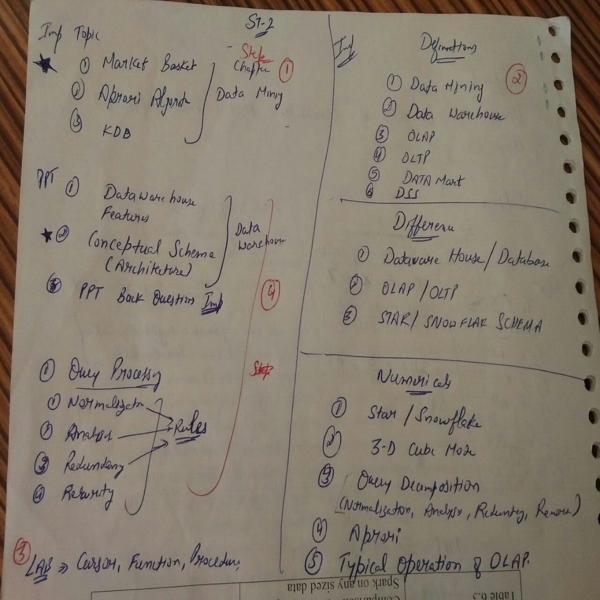 ST-2
Imp Topic
① Market Basket
② Apriori Algorith
③ KDB
Step
Chapter ①
Data Mining
PPT
① Data warehouse
Features
② Conceptual Schema
(Architecture)
③ PPT Back Question Imp
Data
Warehouse
④
① Query Processing
① Normalization
② Analysis
③ Redundancy
④
Rules
③ LAB ⇒ Cursor, Function, Procedure
Imp
Definitions
②
① Data Mining
② Data Warehouse
③ OLAP
④ OLTP
⑤ DATA Mart
⑥ DSS
Difference
① Dataware House / Database
② OLAP / OLTP
③ STAR / SNOWFLAK SCHEMA
Numericals
① Star / Snowflake
② 3-D Cube Mode
③ Query Decomposition
(Normalization, Analysis, Reduntry,
④ Apriori
⑤ Typical Operation of OLAP.
Table 6.3
Spark on any sized data